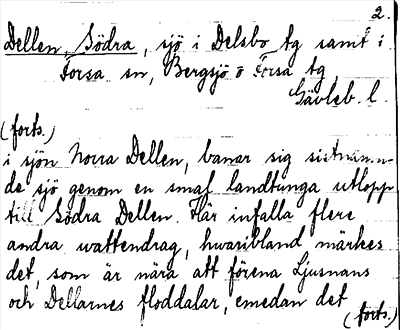 2.
Dellen, Södra, sjö i Delsbo tg samt i
Forsa sn, Bergsjö o Forsa tg
Gävleb. l.
(forts.)
i sjön Norra Dellen, banar sig sistnämn-
de sjö genom en smal landtunga utlopp
till Södra Dellen. Här infalla flere
andra wattendrag, hwaribland märkes
det, som är nära att förena Ljusnans
och Dellarnes floddalar, emedan det
(forts.)